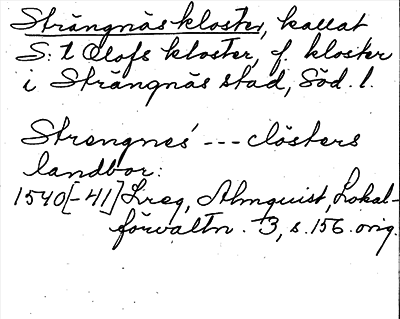 Strängnäs kloster, kallat
S:t Olofs kloster, f. kloster
i Strängnäs stad, Söd. l.
Strengnes' --- clösters
landbor:
1540[-41] Lreg, Almquist, Lokal-
förvaltn. 3, s. 156. orig.